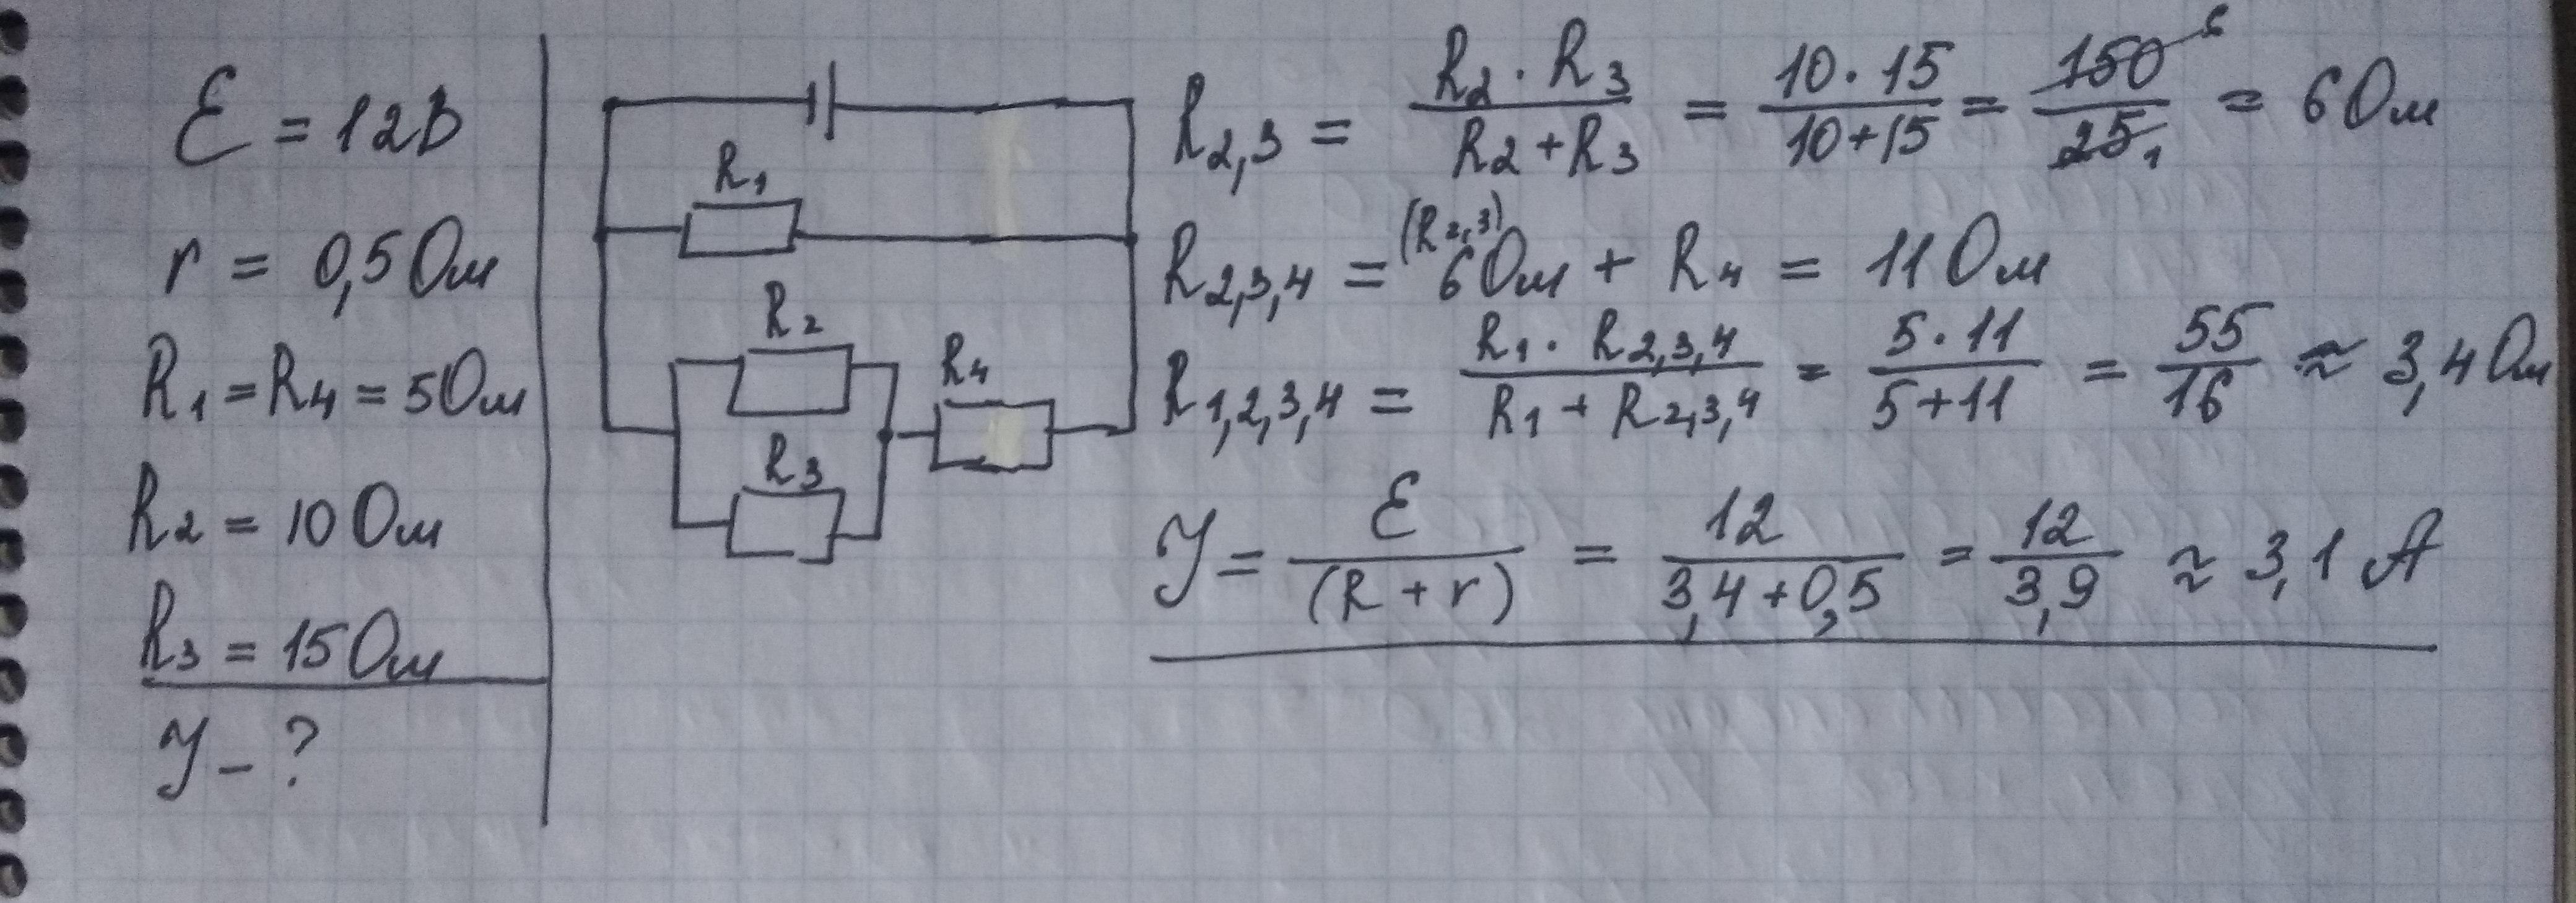 Ɛ = 12В
r = 0,5 Ом
R₁ = R₄ = 5 Ом
R₂ = 10 Ом
R₃ = 15 Ом
У - ?
R₁
R₂
R₄
R₃
R₂,₃ = (R₂ · R₃)/(R₂ + R₃) = (10 · 15)/(10 + 15) = 150 6/25 1 = 6 Ом
(R₂,₃)
R₂,₃,₄ = 6 Ом + R₄ = 11 Ом
R₁,₂,₃,₄ = (R₁ · R₂,₃,₄)/(R₁ + R₂,₃,₄) = (5 · 11)/(5 + 11) = 55/16 ≈ 3,4 Ом
У = Ɛ/(R + r) = 12/(3,4 + 0,5) = 12/3,9 ≈ 3,1 А